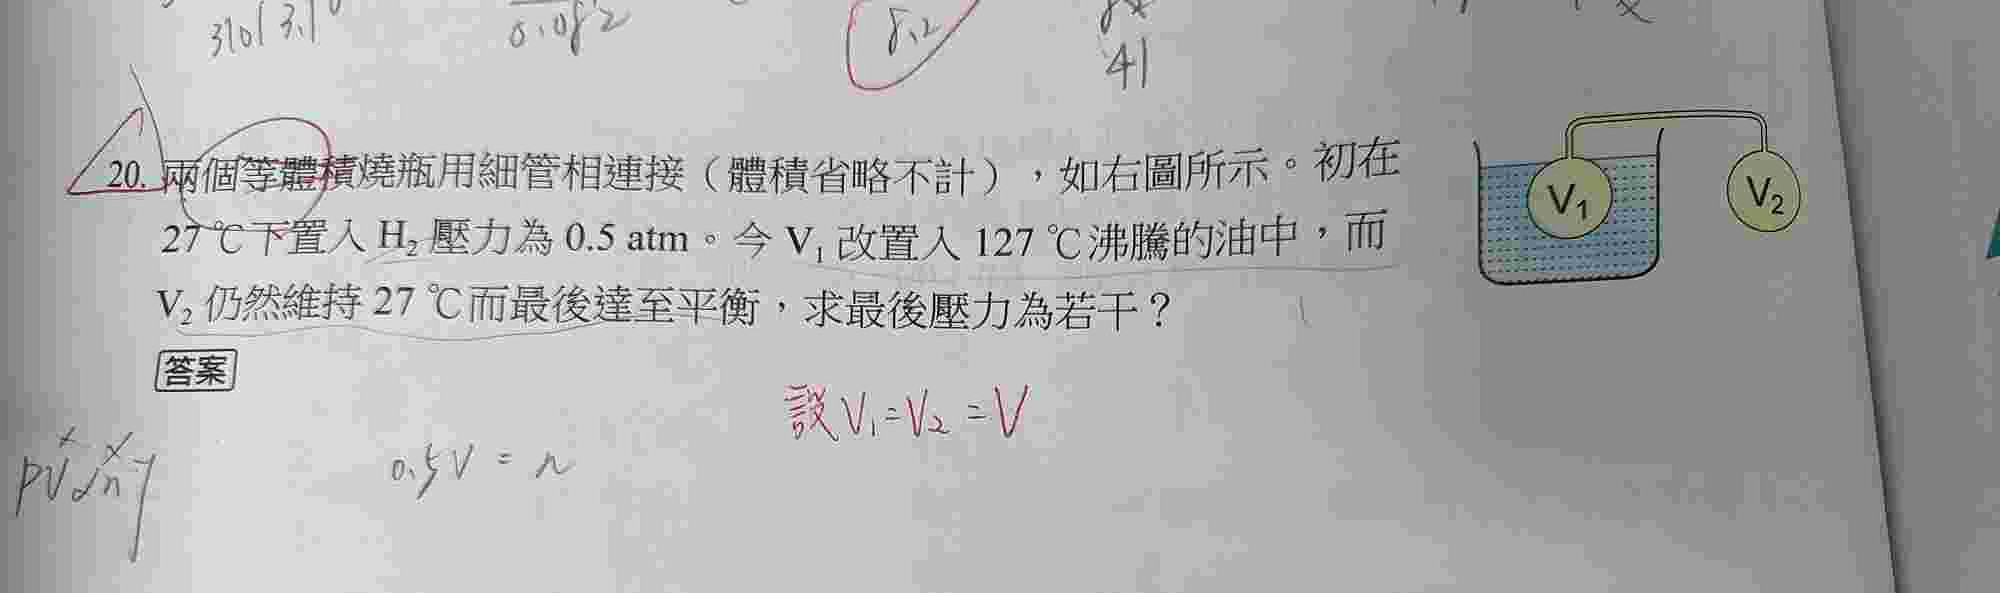 310 3.1
0.082
8.2
41
20. 兩個等體積燒瓶用細管相連接（體積省略不計），如右圖所示。初在
27℃下置入 H₂ 壓力為 0.5 atm。今 V₁ 改置入 127 ℃沸騰的油中，而
V₂ 仍然維持 27 ℃而最後達至平衡，求最後壓力為若干？
V₁
V₂
答案
設 V₁=V₂=V
0.5V = n